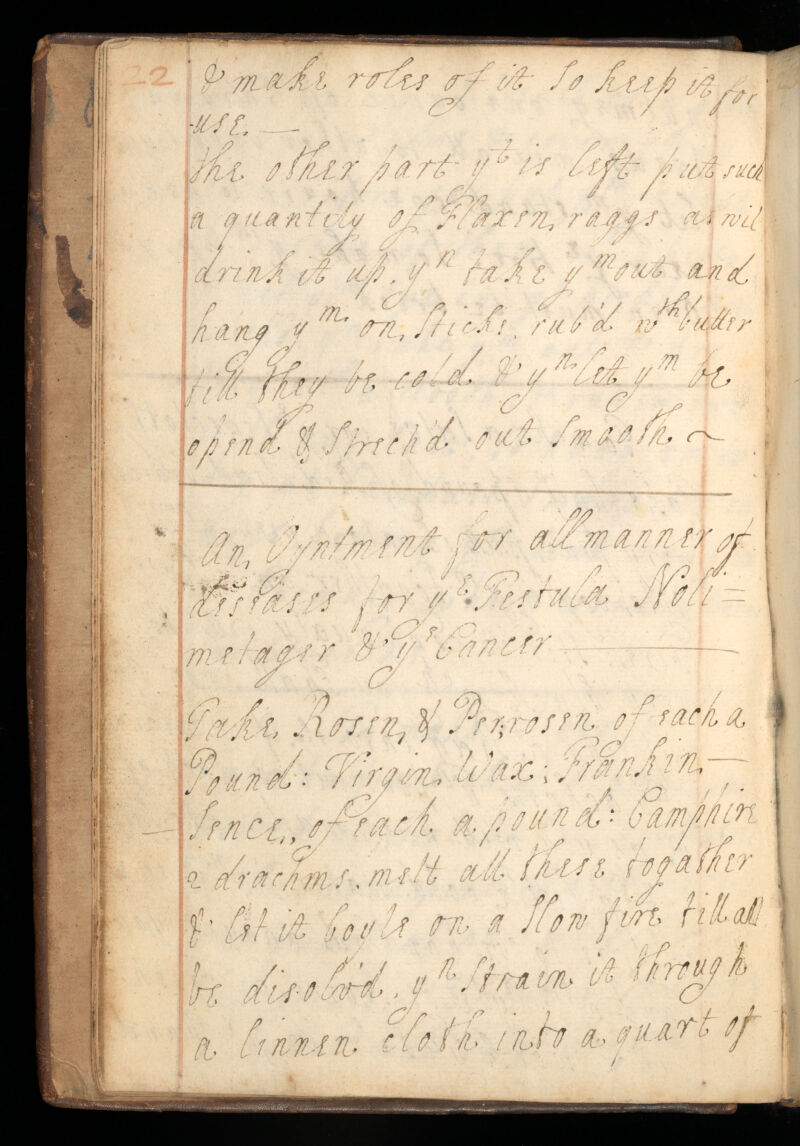 22
& make roles of it so keep it for
use. —
the other part yt is left put such
a quantity of Flaxen raggs as wil
drink it up. yn take ym out and
hang ym on Sticks rub'd wth butter
till they be cold & yn let ym be
opend & Strech'd out Smooth ~
An Oyntment for all manner of
deseases for ye Festula Noli=
metager & ye Cancer —
Take Rosen & Perrosen of each a
Pound: Virgin Wax: Frankin —
Sence, of each a pound: Camphire
2 drachms. melt all these togather
& let it boyle on a Slow fire till all
be disolv'd. yn Strain it through
a linnen cloth into a quart of